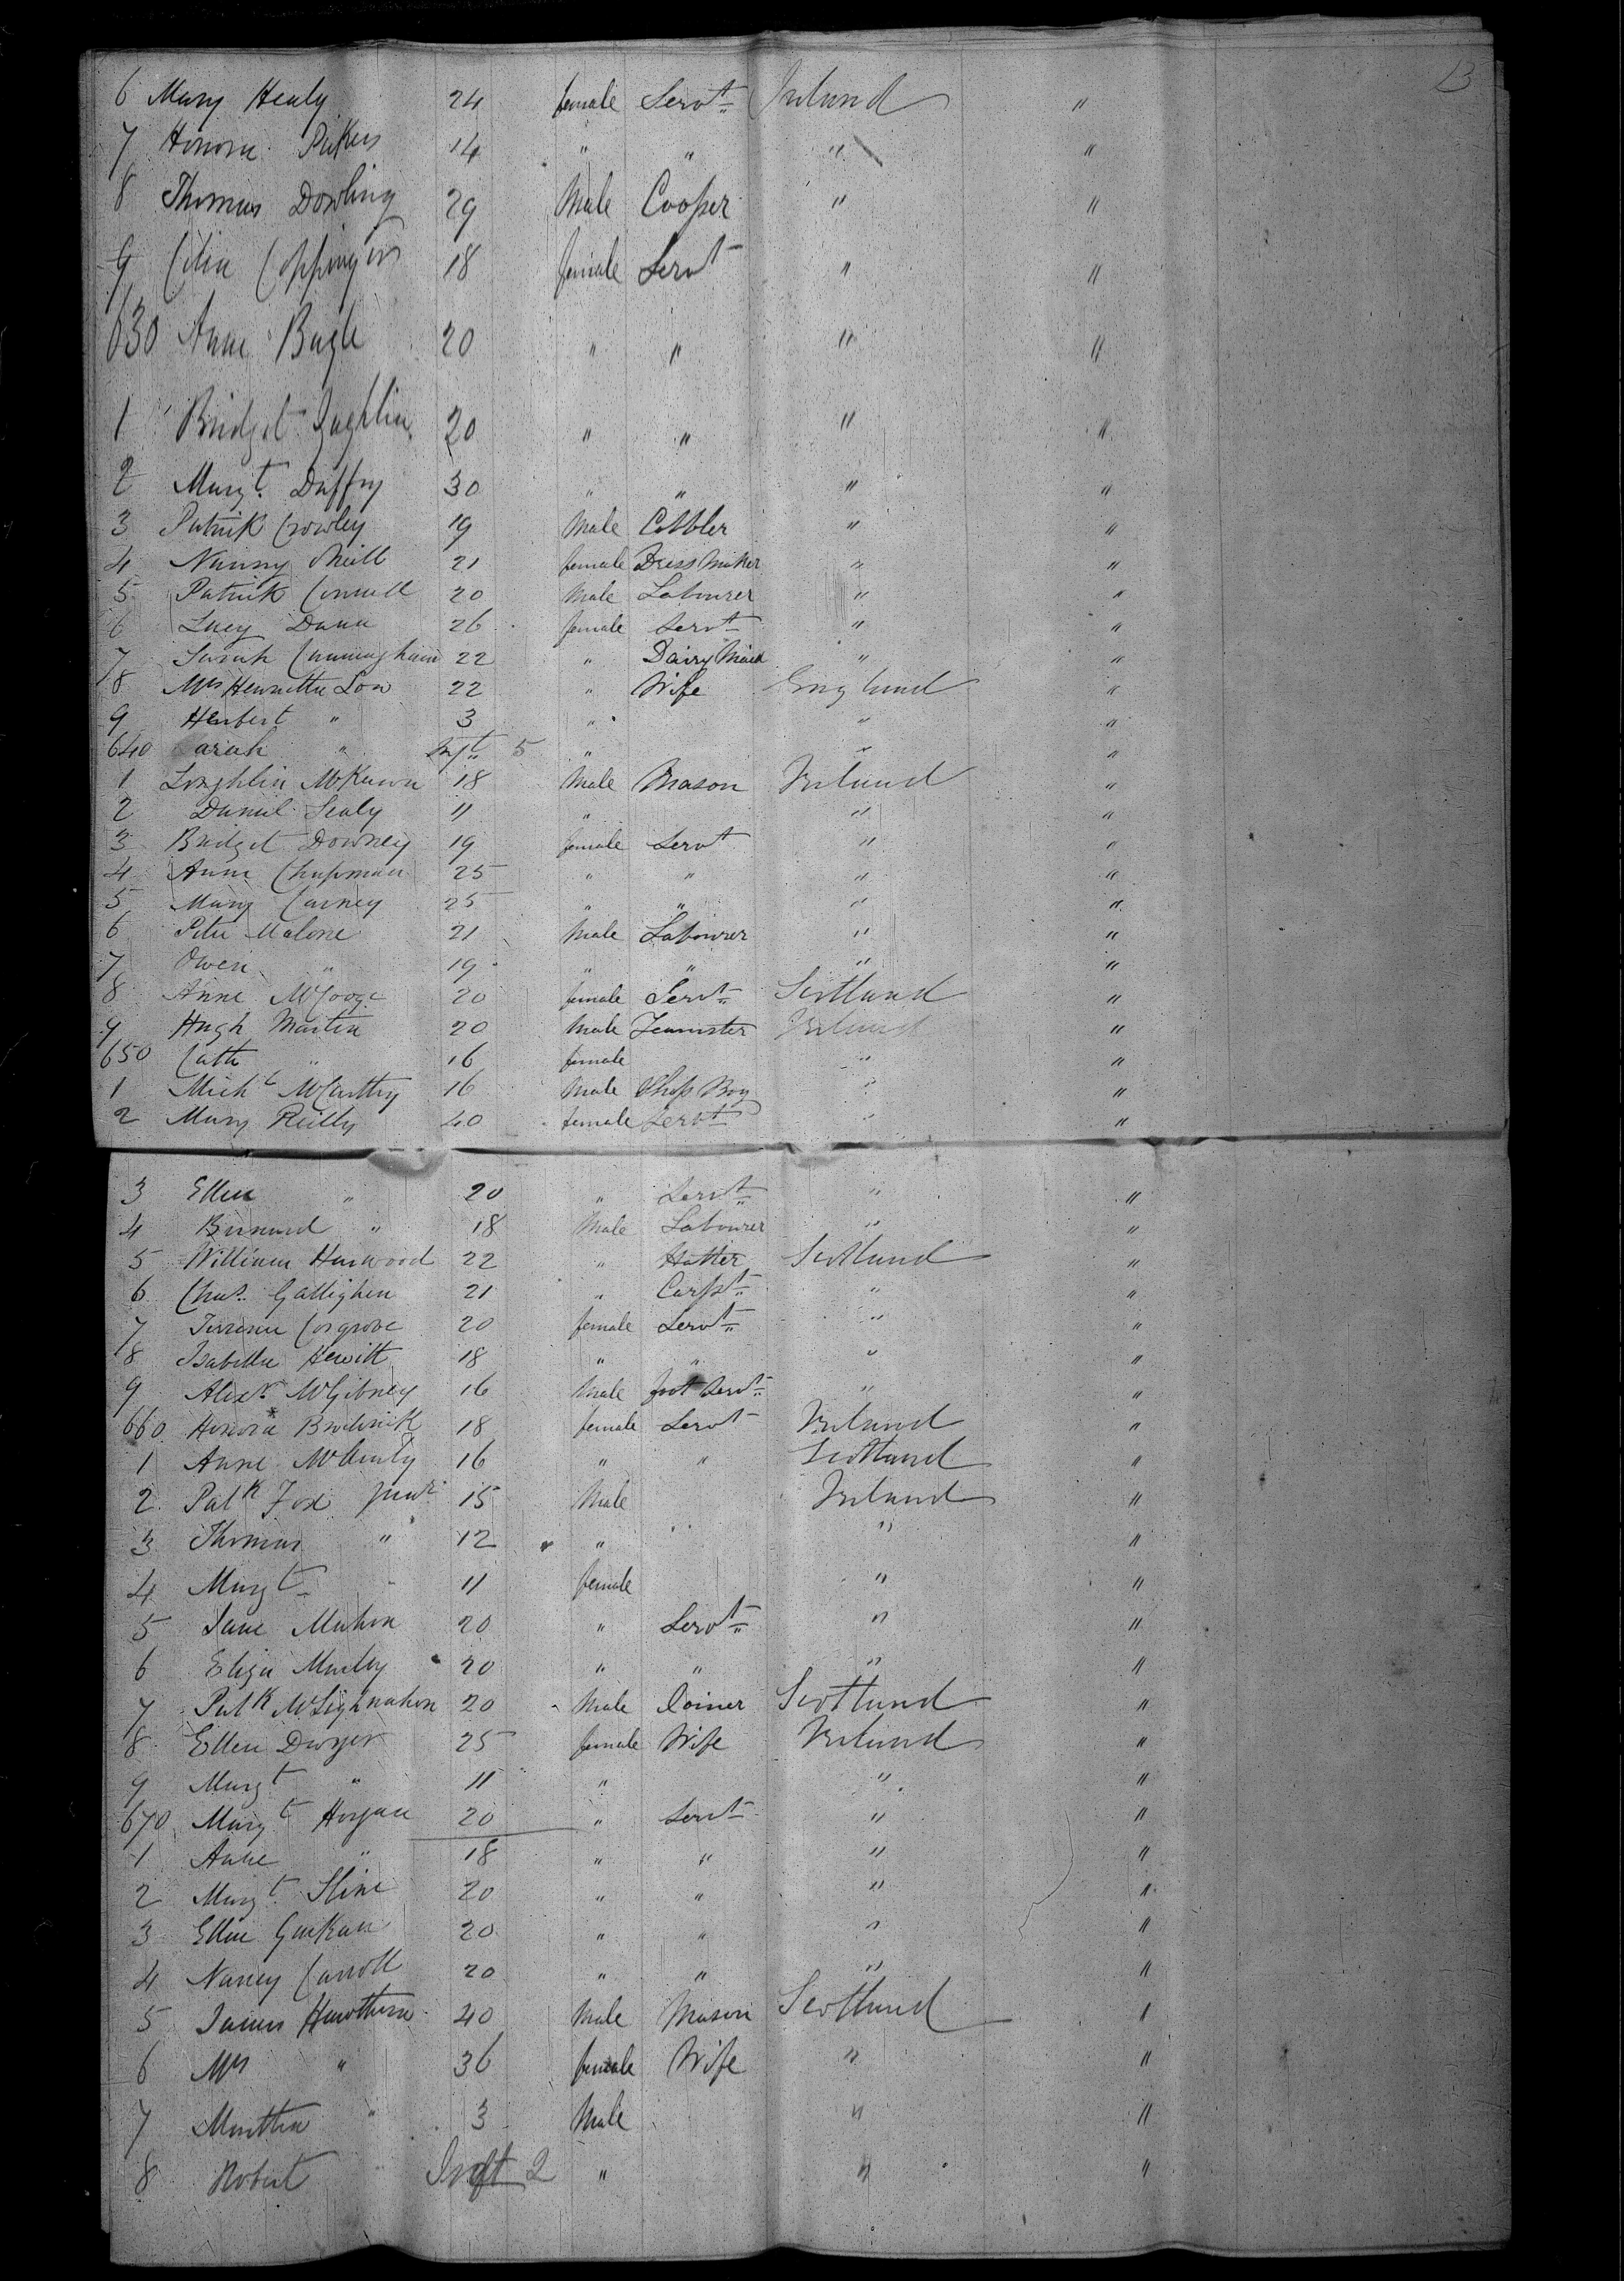 13
6 Mary Healy 24 female Servt Ireland "
7 Honora 14 " " " "
8 Thomas Dowling 29 Male Cooper " "
9 Celia Coppinger 18 female Servt " "
630 Anne Bugle 20 " " " "
1 Bridget 20 " " " "
2 Margt. Duffy 30 " " " "
3 Patrick Crowley 19 Male Cobbler " "
4 Nanny Neill 21 female Dress Maker " "
5 Patrick Connell 20 Male Labourer " "
6 Lucy Dunn 26 female Servt " "
7 Sarah Cunningham 22 " Dairy Maid " "
8 Mrs Henrietta Low 22 " Wife England "
9 Herbert " 3 " " "
640 Sarah " Inft 5 " " "
1 Loughlin McKeown 18 Male Mason Ireland "
2 Daniel Sealy 11 " " "
3 Bridget Downey 19 female Servt " "
4 Anne Chapman 25 " " " "
5 Mary Carney 25 " " " "
6 Peter Malone 21 Male Labourer " "
7 Owen " 19 " " " "
8 Anne 20 female Servt Scotland "
9 Hugh Martin 20 Male Teamster Ireland "
650 Cath " 16 female " "
1 Michl McCarthy 16 Male Shop Boy " "
2 Mary Reilly 40 female Servt " "
3 Ellen " 20 " Servt " "
4 Bernard " 18 Male Labourer " "
5 William Harwood 22 " Hatter Scotland "
6 Chas. Gallighen 21 " Carpt " "
7 Cosgrove 20 female Servt " "
8 Isabella Hewitt 18 " " " "
9 Alexr. McGibney 16 Male foot Servt " "
660 Honora Broderick 18 female Servt Ireland "
1 Anne 16 " " Scotland "
2 Patk Fox Junr 15 Male Ireland "
3 Thomas " 12 " " "
4 Margt " 11 female " "
5 Jane Mahon 20 " Servt " "
6 Eliza 20 " " " "
7 Patk 20 Male Joiner Scotland "
8 Ellen Dwyer 25 female Wife Ireland "
9 Margt " 11 " " "
670 Margt Hogan 20 " Servt " "
1 Anne " 18 " " " "
2 Margt. Sline 20 " " " "
3 Ellen 20 " " " "
4 Nancy Carroll 20 " " " "
5 James Hawthorn 40 Male Mason Scotland "
6 Mrs " 36 female Wife " "
7 Matthew " 3 Male " "
8 Robert Inft 2 " " "